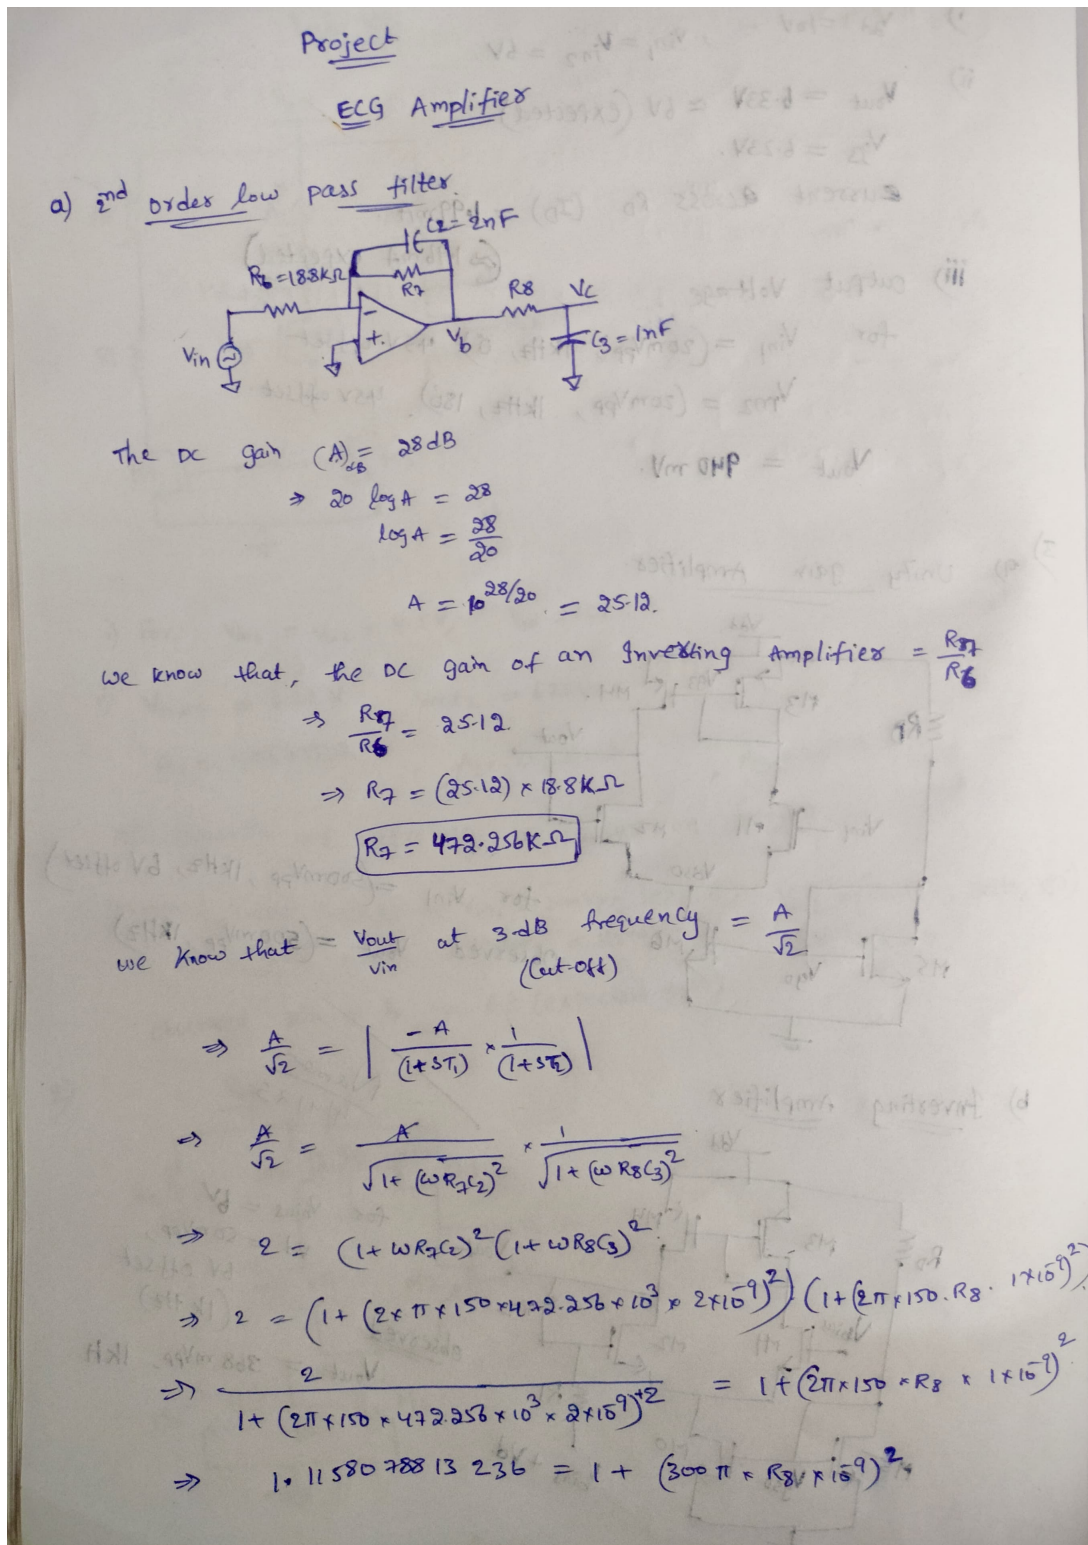 Project
ECG Amplifier
a) 2nd order low pass filter.
C2 = 2nF
R6 = 18.8KΩ
R7
R8
Vc
Vin
-
+
Vb
C3 = 1nF
The DC gain (A)dB = 28dB
⇒ 20 log A = 28
log A = 28/20
A = 10^28/20 = 25.12.
we know that, the DC gain of an Inverting Amplifier = R7/R6
⇒ R7/R6 = 25.12.
⇒ R7 = (25.12) × 18.8KΩ
R7 = 472.256KΩ
we know that = Vout/Vin at 3-dB frequency = A/√2
(Cut-off)
⇒ A/√2 = | -A/(1+ST1) × 1/(1+ST2) |
⇒ A/√2 = A/√1+(ωR7C2)² × 1/√1+(ωR8C3)²
⇒ 2 = (1+ωR7C2)² (1+ωR8C3)²
⇒ 2 = (1+(2×π×150×472.256×10³×2×10⁻⁹)²) (1+(2π×150.R8.1×10⁻⁹)²
⇒ 2/1+(2π×150×472.256×10³×2×10⁻⁹)² = 1+(2π×150×R8×1×10⁻⁹)²
⇒ 1.1158078813236 = 1+(300π×R8×10⁻⁹)².